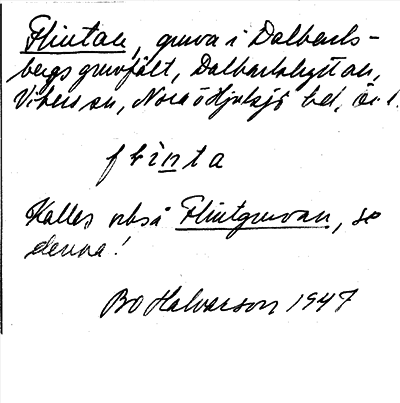 Flintan, gruva i Dalkarls-
bergs gruvfält, Dalkarlshyttan,
Vikers sn, Nora o Hjulsjö bsl, Ör. l.
flinta
Kallas också Flintgruvan, se
denna!
Bo Halvarson 1947